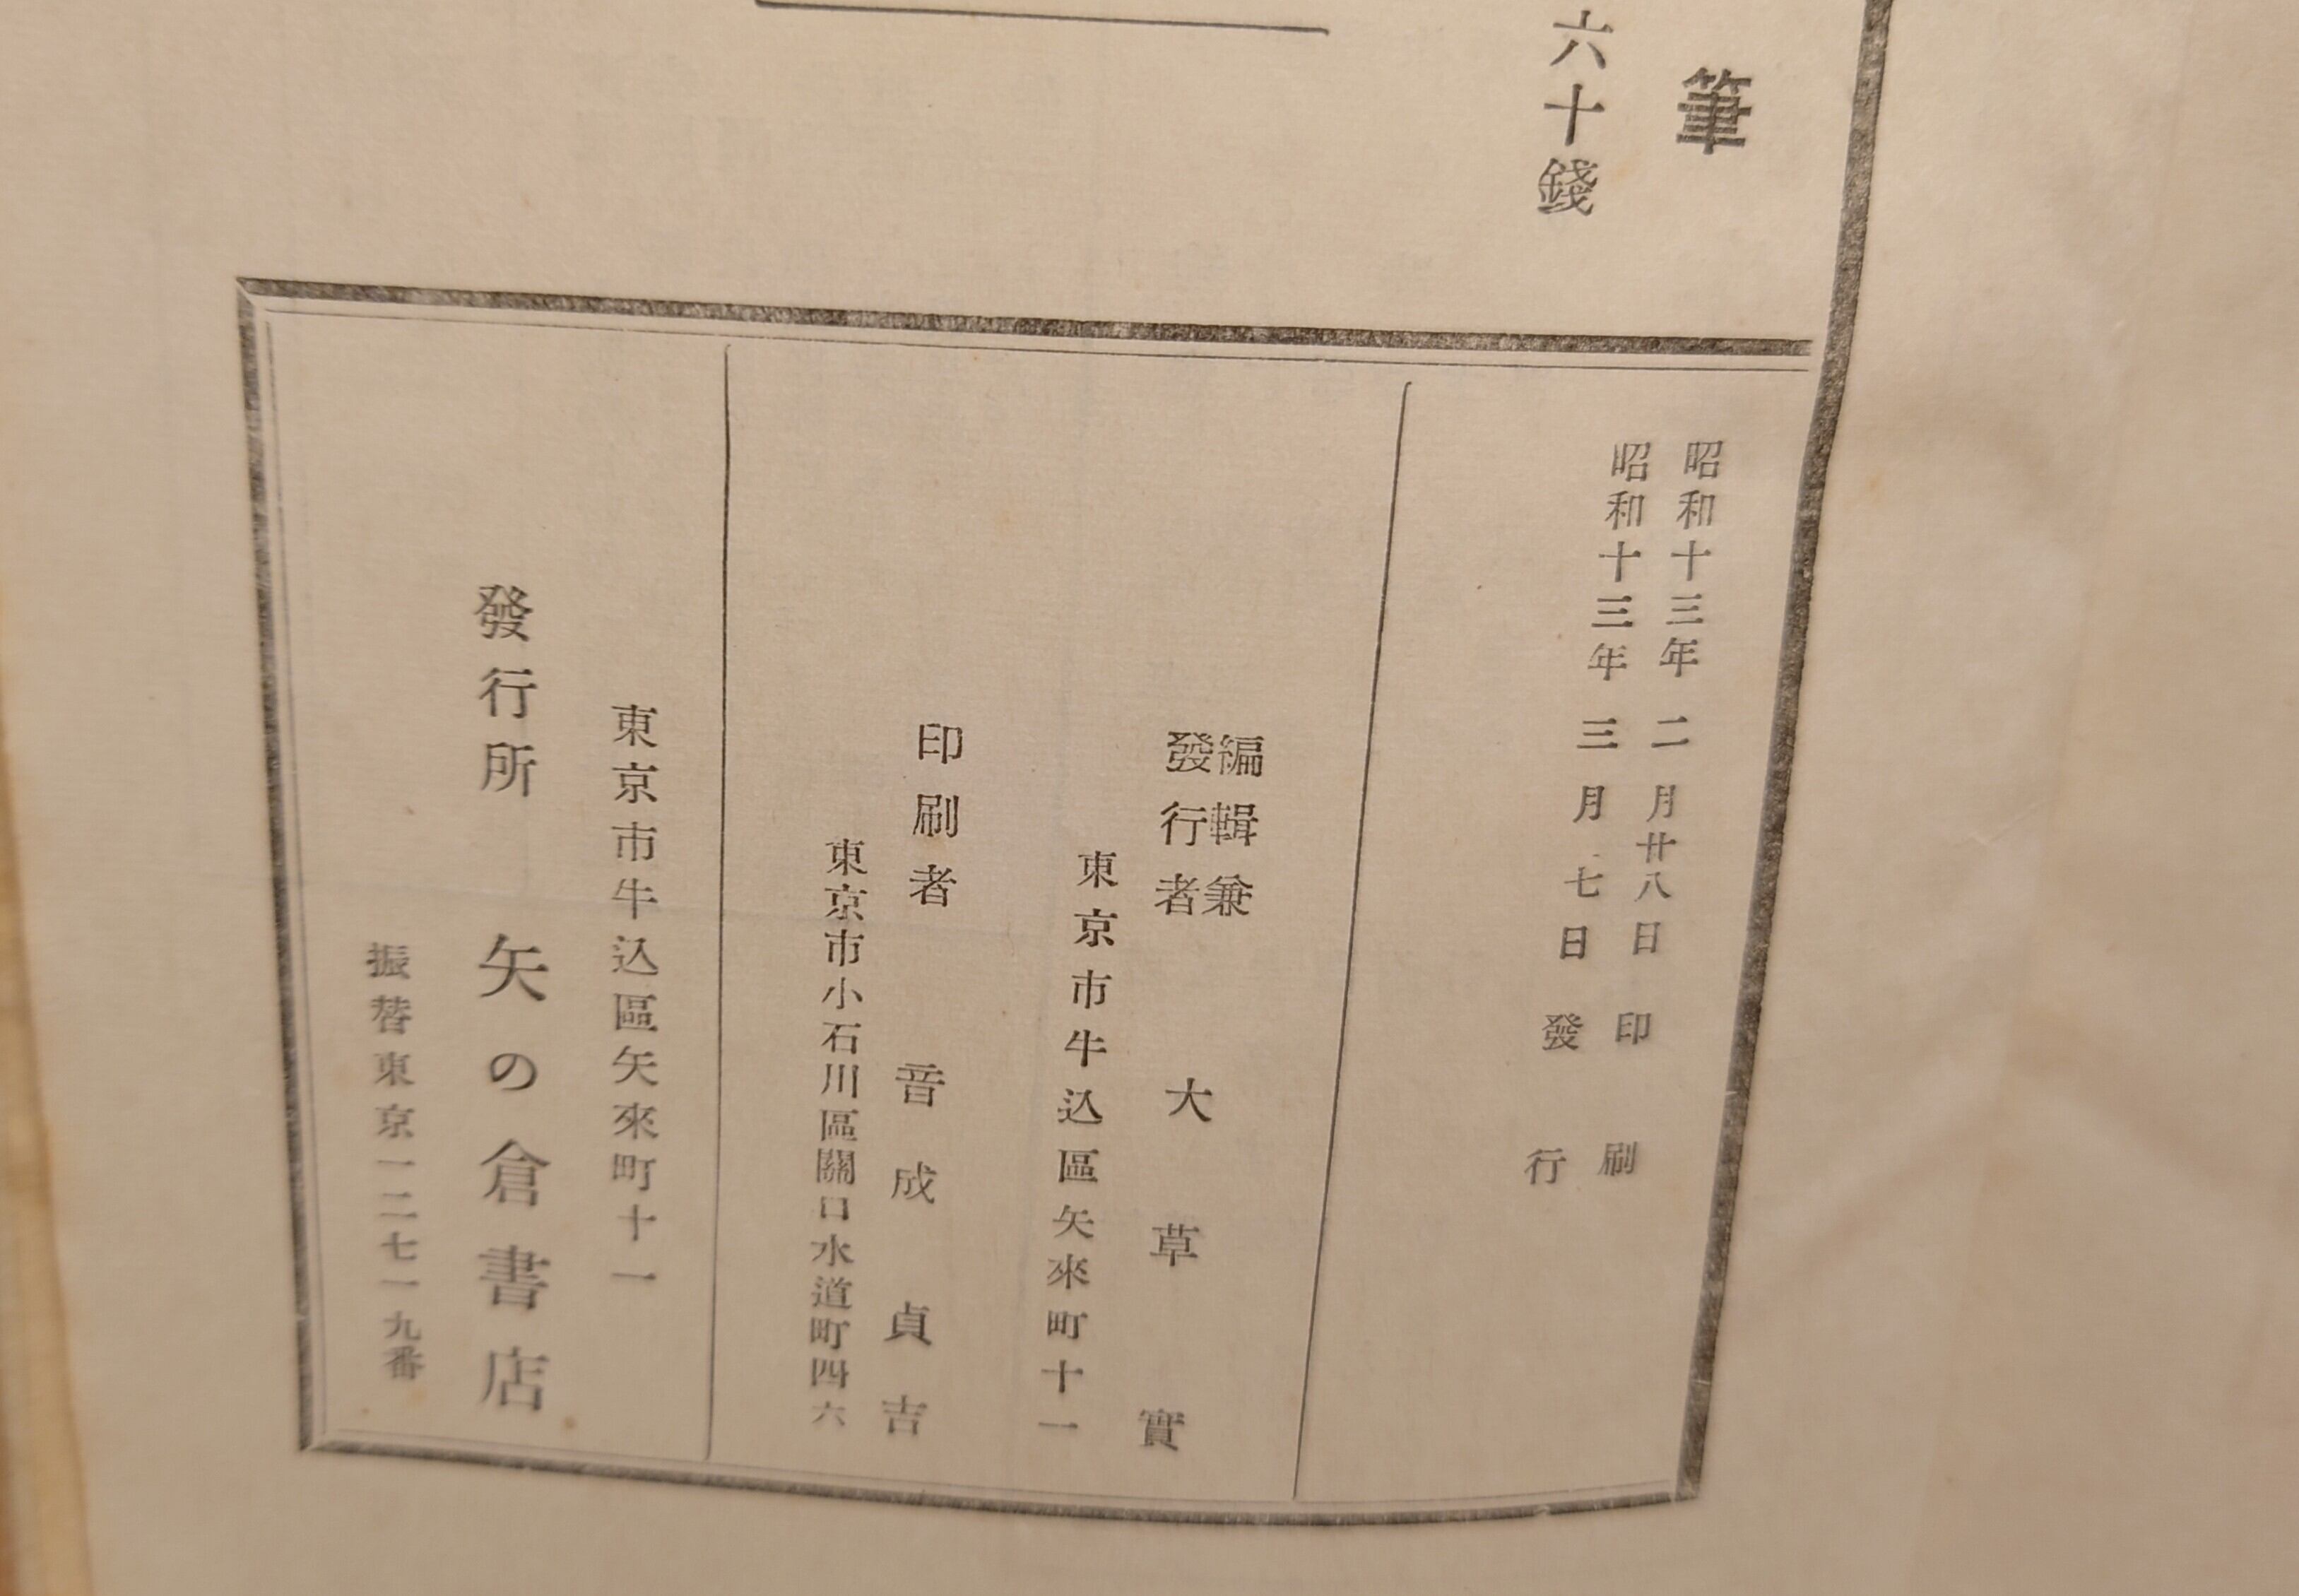 筆
六十錢
昭和十三年二月廿八日印刷
昭和十三年三月七日發行
編輯兼
發行者 大草實
東京市牛込區矢來町十一
印刷者 音成貞吉
東京市小石川區關口水道町四六
東京市牛込區矢來町十一
發行所 矢の倉書店
振替東京一二七一九番